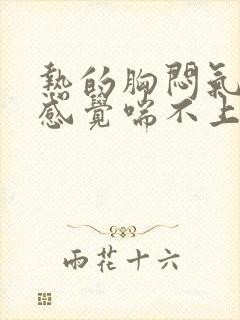 熱的胸悶氣
感覺喘不上
雨花十六